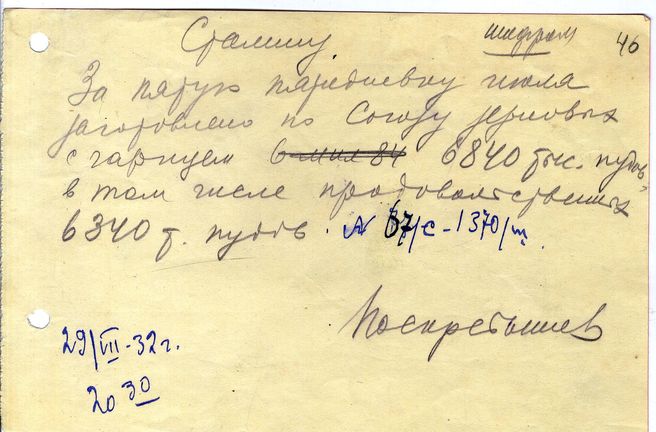 шифром 46
Сталину.
За пятую пятидневку июля
заготовлено по Союзу зерновых
с гарнцем 6 мил 84 6840 тыс. пудов,
в том числе продовольственных
6340 т. пудов. № 37/с-1370/ш.
Поскребышев
29/VII-32 г.
20 30